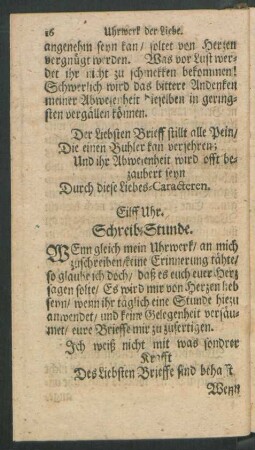 16 Uhrwerk der Liebe.
angenehm seyn kan/ soltet von Herzen
vergnügt werden. Was vor Lust wer-
det ihr nicht zu schmekken bekommen!
Schwerlich wird das bittere Andenken
meiner Abwezenheit diezelben in gering-
sten vergällen können.
Der Liebsten Brieff stillt alle Pein/
Die einen Buhler kan verzehren;
Und ihr Abwezenheit wird offt be-
zaubert seyn
Durch diese Liebes-Caracteren.
Eilff Uhr.
Schreib-Stunde.
WEnn gleich mein Uhrwerk/ an mich
zuschreiben/ keine Erinnerung tähte/
so glaube ich doch/ daß es euch eure Herz
sagen solte/ Es wird mir von Herzen lieb
seyn/ wenn ihr täglich eine Stunde hiezu
anwendet/ und keine Gelegenheit versäu-
met/ eure Brieffe mir zu zufertigen.
Ich weiß nicht mit was sondrer
Krafft
Des Liebsten Brieffe sind behafft.
Wenn